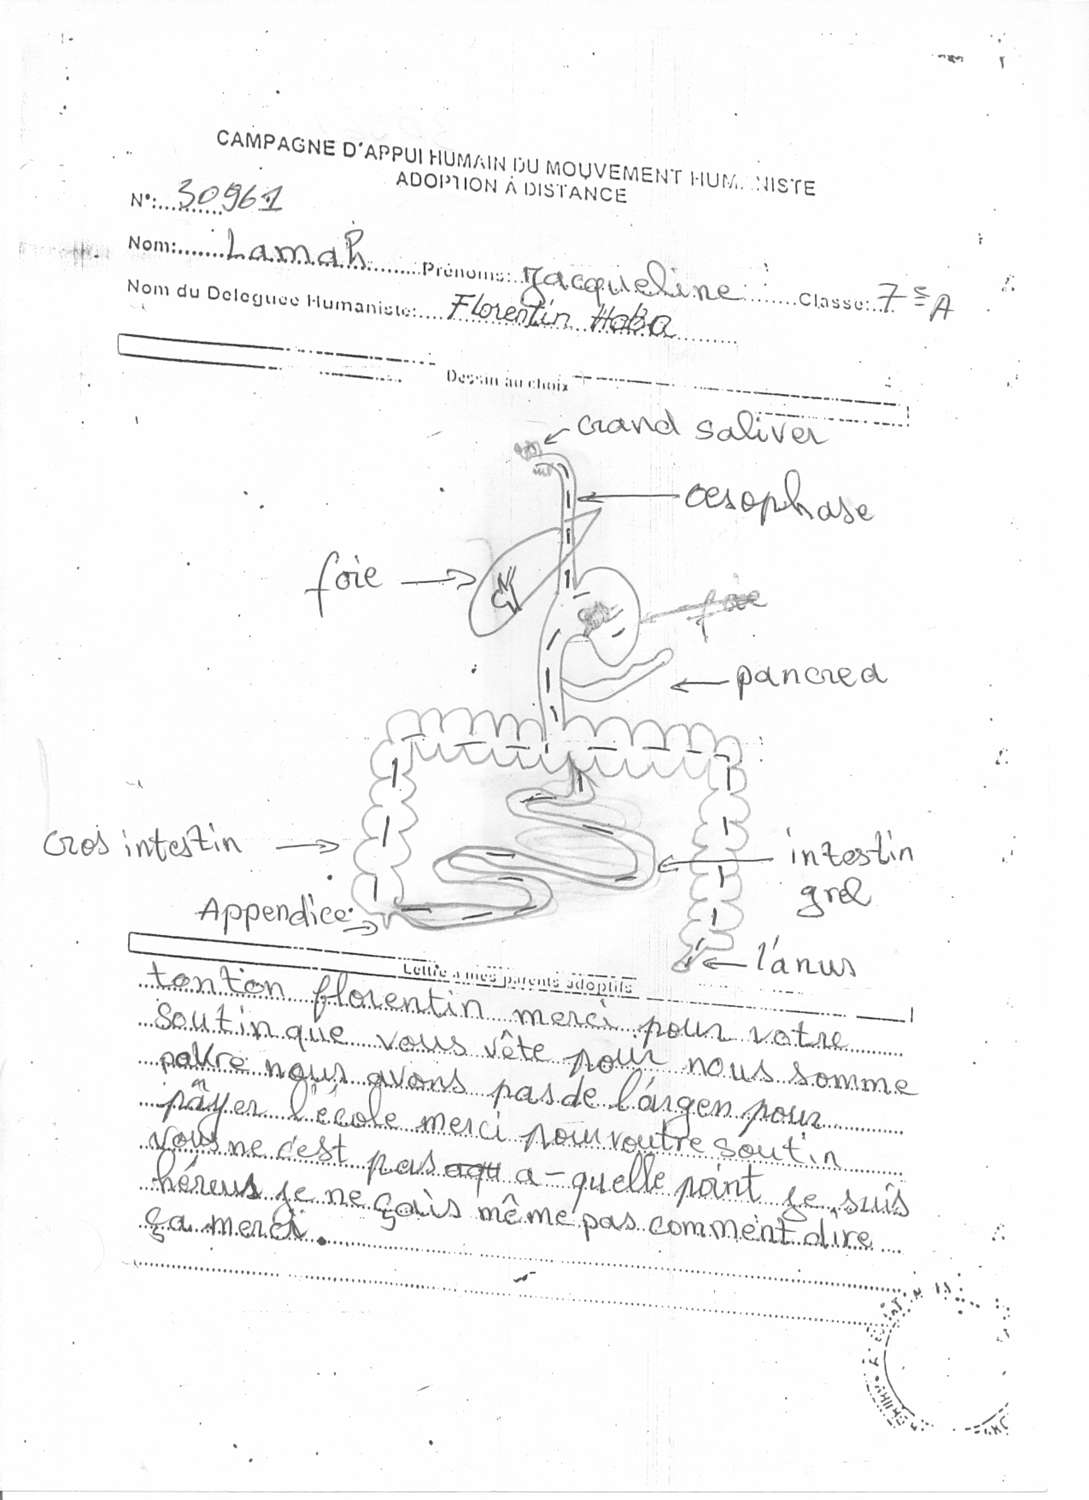 CAMPAGNE D'APPUI HUMAIN DU MOUVEMENT HUM. NISTE
ADOPTION À DISTANCE
N°:..........30961
Nom:.......Lamah.......Prénoms:..Jacqueline......Classe:..7e A
Nom du Deleguee Humaniste:....Florentin Haba
Dessin au choix
Grand saliver
oesophase
foie
pancrea
Gros intestin
intestin
grel
Appendice
l'anus
Lettre a mes parents adoptifs
tonton florentin merci pour votre
soutin que vous vête pour nous somme
povre nous avons pas de l'argen pour
pâyer l'école merci pour voutre soutin
vous ne c'est pas a-quelle point je suis
héreus je ne çais même pas comment dire
ça merci.